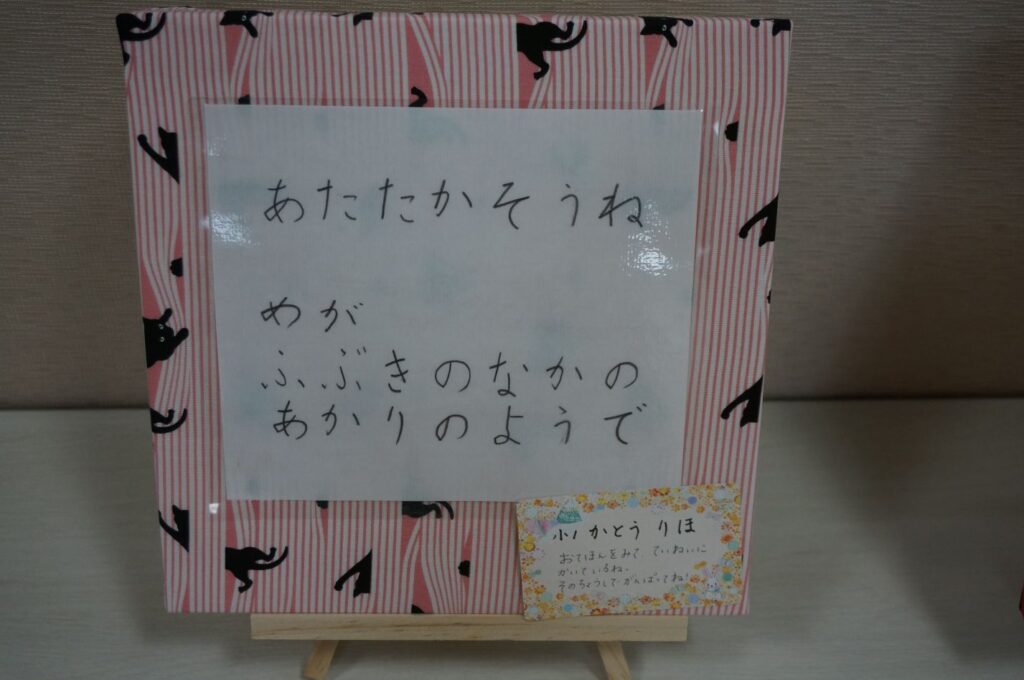 あたたかそうね
めが
ふぶきのなかの
あかりのようで
小1 かとう りほ
おてほんをみて、ていねいに
かいているね。
そのちょうしで がんばってね!